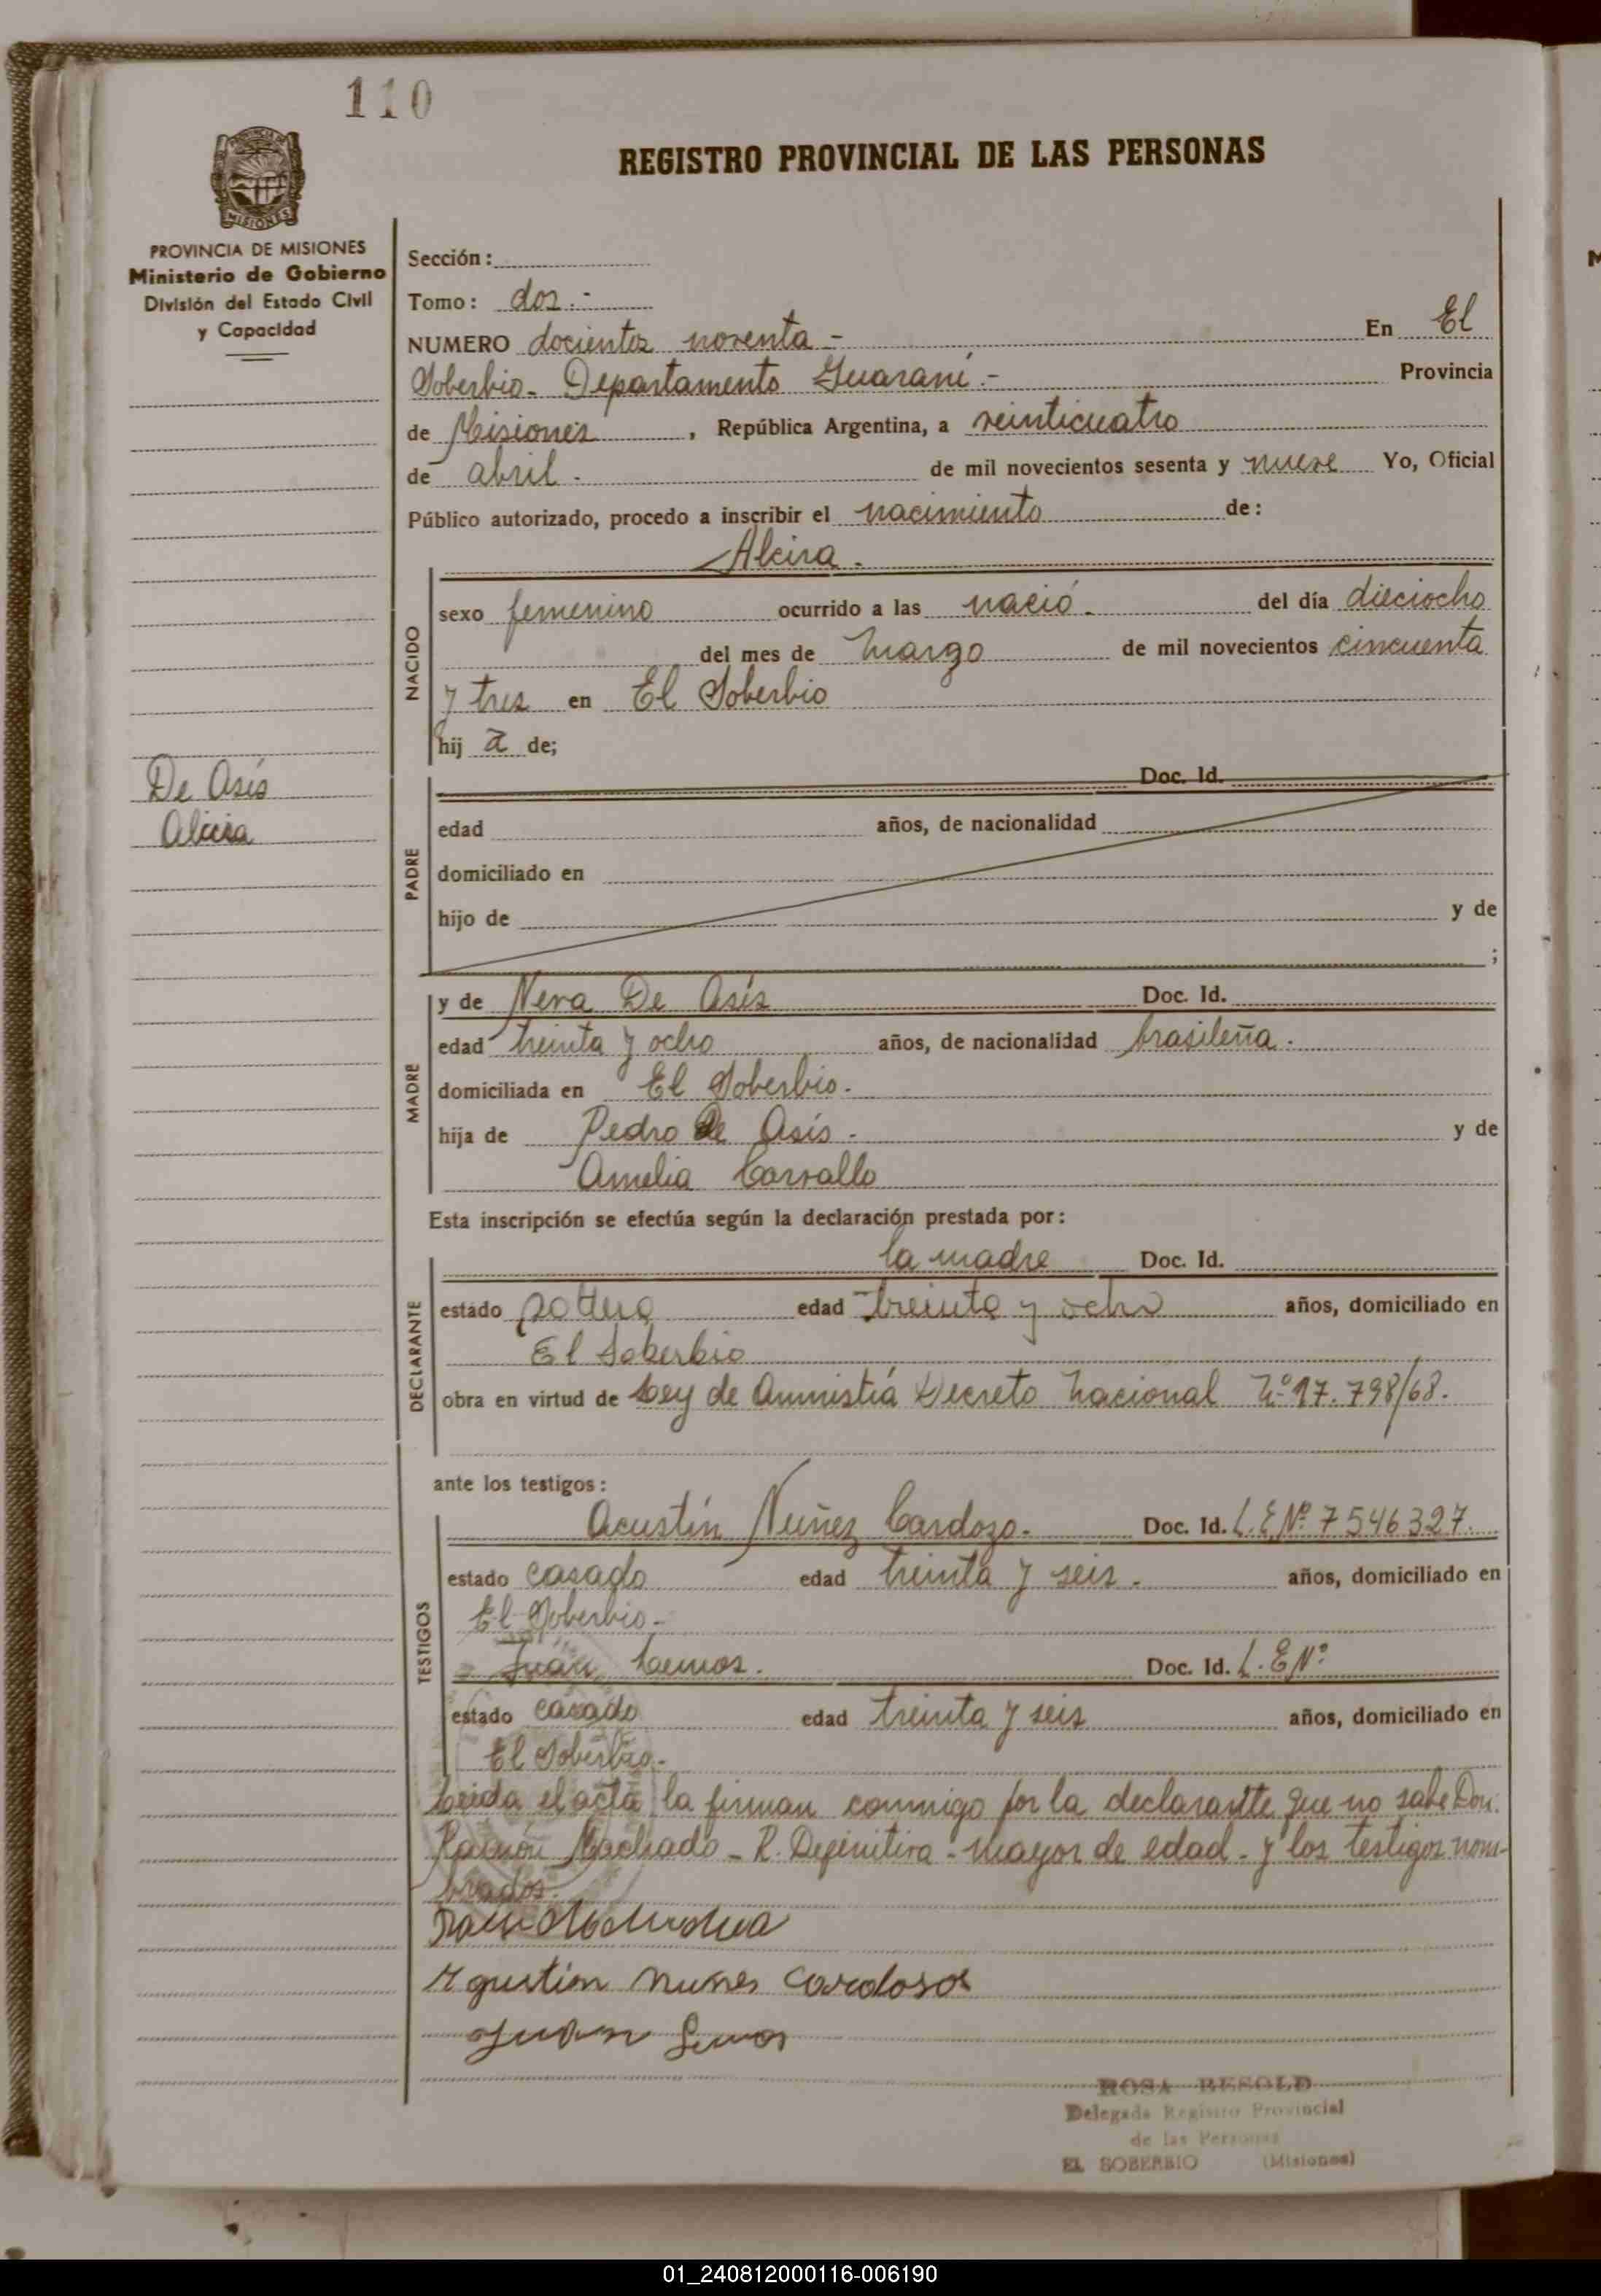 110
REGISTRO PROVINCIAL DE LAS PERSONAS
PROVINCIA DE MISIONES
Ministerio de Gobierno
División del Estado Civil
y Capacidad
Sección:
Tomo: dos.-
NUMERO docientos noventa - En El
Soberbio - Departamento Guaraní.- Provincia
de Misiones, República Argentina, a veinticuatro
de abril. de mil novecientos sesenta y nueve Yo, Oficial
Público autorizado, procedo a inscribir el nacimiento de:
Alcira.
NACIDO
sexo femenino ocurrido a las nació. del día dieciocho
del mes de marzo de mil novecientos cincuenta
y tres en El Soberbio
hij a de;
De Asís
Alcira
PADRE
Doc. Id.
edad años, de nacionalidad
domiciliado en
hijo de y de
;
MADRE
y de Neva De Asís Doc. Id.
edad treinta y ocho años, de nacionalidad brasileña.
domiciliada en El Soberbio.
hija de Pedro de Asís. y de
Amelia Carvallo
Esta inscripción se efectúa según la declaración prestada por:
DECLARANTE
la madre Doc. Id.
estado soltera edad treinta y ocho años, domiciliado en
El Soberbio
obra en virtud de Ley de Amnistía Decreto Nacional Nº 17.798/68.
ante los testigos:
TESTIGOS
Acustín Nuñez Cardozo. Doc. Id. L.E Nº 7546327.
estado casado edad treinta y seis. años, domiciliado en
El Soberbio.
Juan Lemos. Doc. Id. L.E Nº
estado casado edad treinta y seis años, domiciliado en
El Soberbio.
Leida el acta la firman conmigo por la declarante que no sabe Don.
Ramón Machado - R. Definitiva - mayor de edad - y los testigos nom-
brados.
Agustin Nunes Cardoso
Juan Lemos
ROSA BESOLD
Delegada Registro Provincial
de las Personas
EL SOBERBIO (Misiones)
01_240812000116-006190